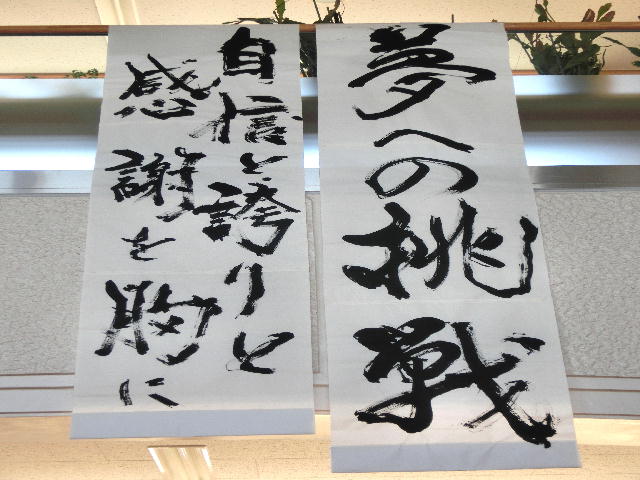 夢への挑戦
自信と誇りと
感謝を胸に